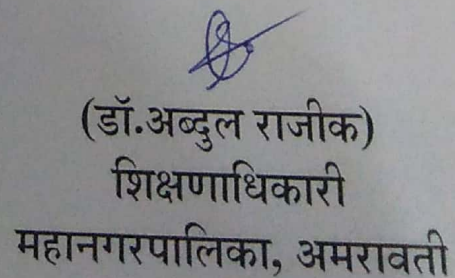 (डॉ.अब्दुल राजीक)
शिक्षणाधिकारी
महानगरपालिका, अमरावती